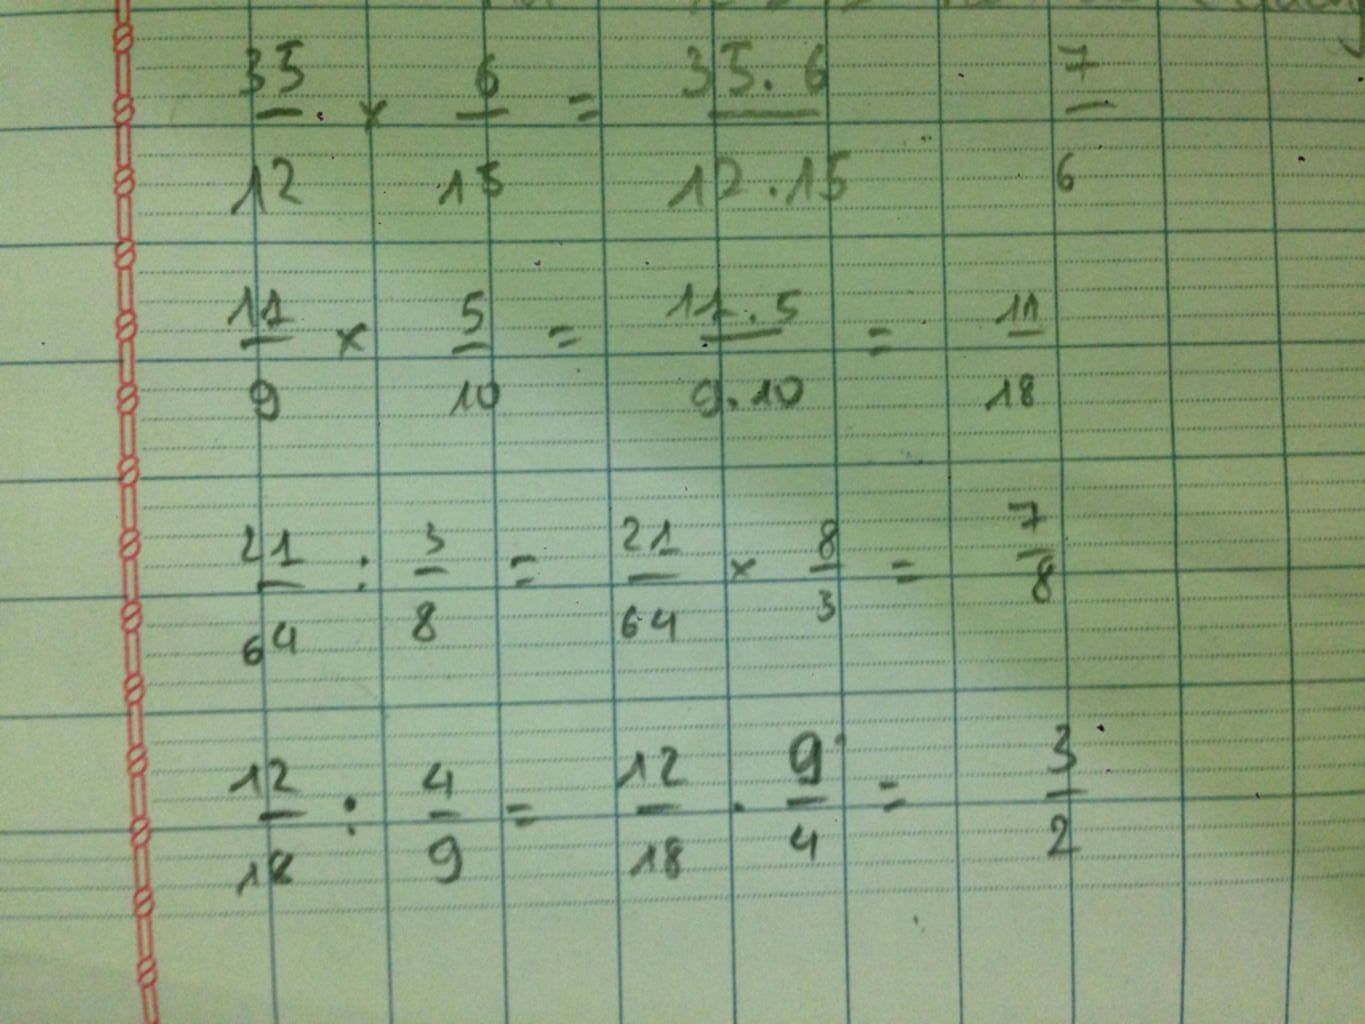 35/12 × 6/15 = 35.6/12.15 7/6
11/9 × 5/10 = 11.5/9.10 = 11/18
21/64 : 3/8 = 21/64 × 8/3 = 7/8
12/18 : 4/9 = 12/18 . 9/4 = 3/2